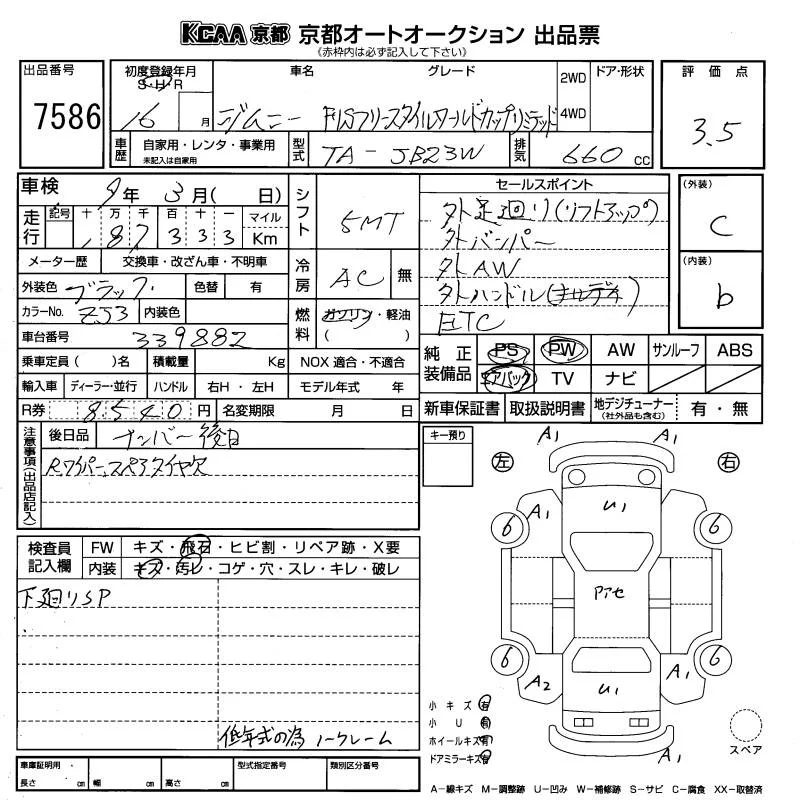 KCAA 京都 京都オートオークション 出品票
(赤枠内は必ず記入して下さい)
出品番号
7586
初度登録年月
S・H・R
16 月
車名
ジムニー
グレード
FISフリースタイルワールドカップリミテッド
2WD
4WD
ドア・形状
評価点
3.5
車歴
自家用・レンタ・事業用
未記入は自家用
型式
TA-JB23W
排気
660 cc
車検
9年 3月( 日)
走行
記号 十 万 千 百 十 一 マイル
187333 Km
シフト
5MT
メーター歴 交換車・改ざん車・不明車
外装色 ブラック 色替 有
カラーNo. ZJ3 内装色
車台番号 339882
冷房
AC 無
燃料
ガソリン・軽油
( )
乗車定員( )名 積載量 Kg NOX 適合・不適合
輸入車 ディーラー・並行 ハンドル 右H・左H モデル年式 年
R券 8540円 名変期限 月 日
セールスポイント
外足廻り(リフトアップ)
外バンパー
外AW
外ハンドル
ETC
(外装)
C
(内装)
b
純正装備品
PS PW AW サンルーフ ABS
エアバック TV ナビ
新車保証書 取扱説明書 地デジチューナー (社外品も含む) 有・無
注意事項(出品店記入)
後日品 ナンバー後日
Rワイパー、スペアタイヤ欠
キー預り
検査員記入欄
FW キズ・飛石・ヒビ割・リペア跡・X要
内装 キズ・汚レ・コゲ・穴・スレ・キレ・破レ
下廻りSP
低年式の為 ノークレーム
A1 A1
左 右
U1
A1
6 6
Pアセ
6 6
A2 U1 A1
A1
小キズ 有
小U 有
ホイールキズ 有
ドアミラーキズ 有
スペア
車庫証明用
長さ cm 幅 cm 高さ cm
型式指定番号
類別区分番号
A-線キズ M-調整跡 U-凹み W-補修跡 S-サビ C-腐食 XX-取替済